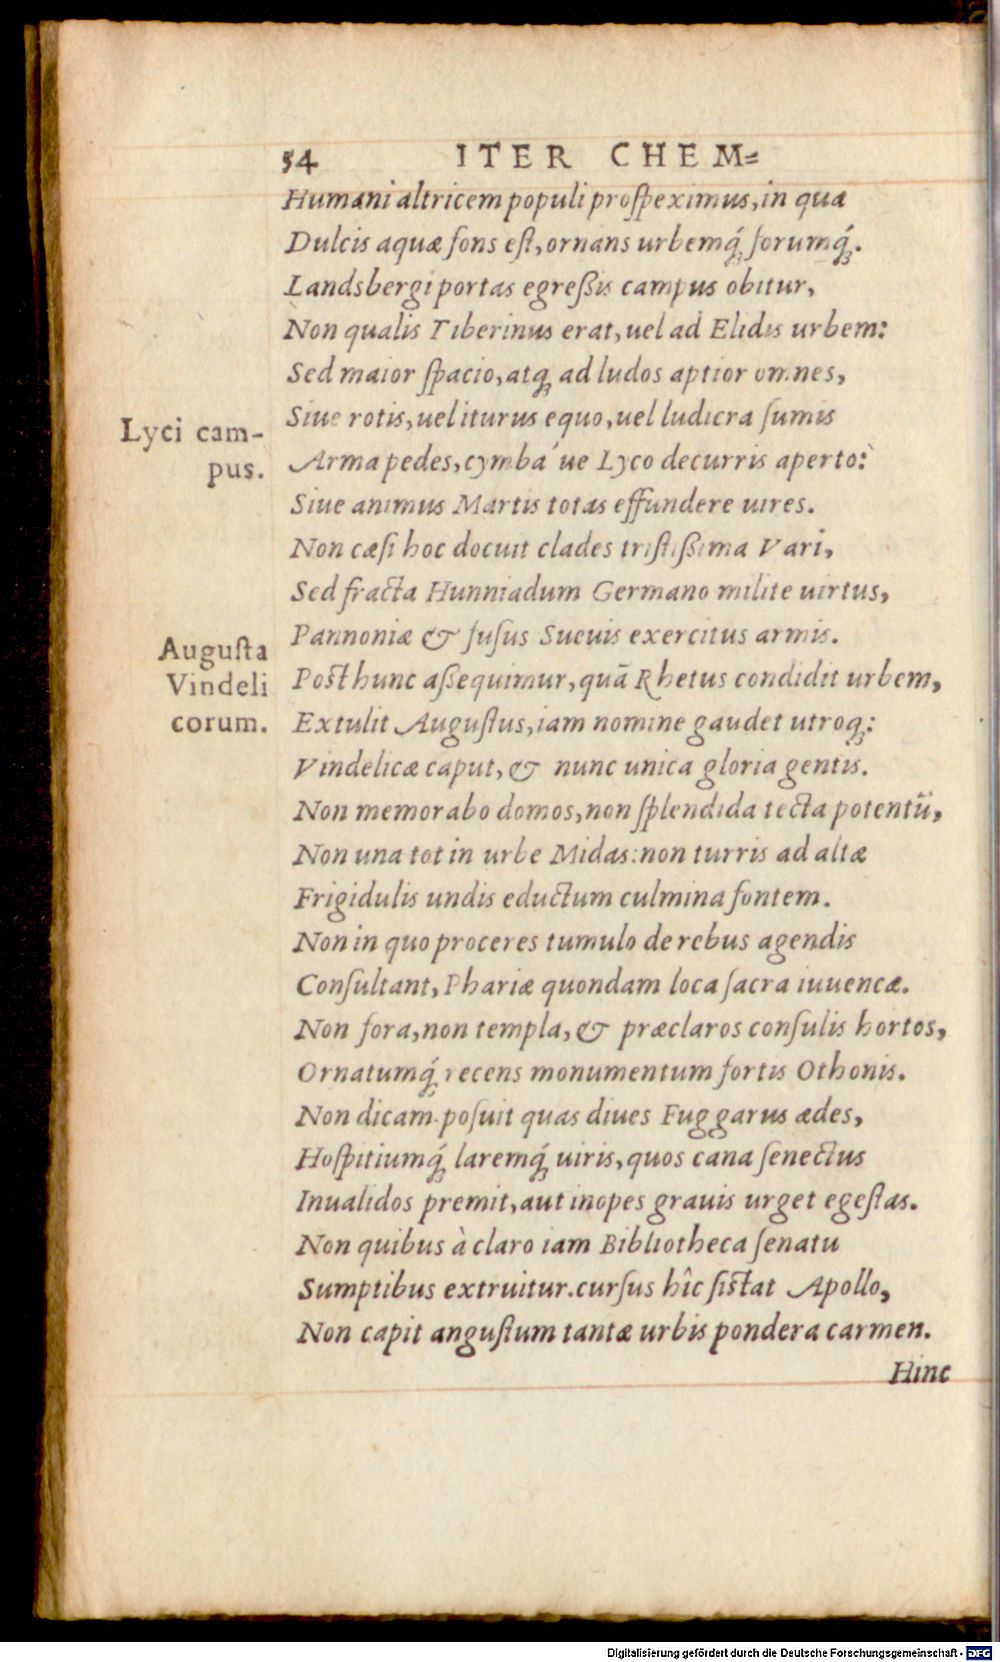 54 ITER CHEM=
Humani altricem populi proſpeximus, in qua
Dulcis aquæ fons eſt, ornans urbemq́; forumq́;.
Landsbergi portas egreßis campus obitur,
Non qualis Tiberinus erat, uel ad Elidis urbem:
Sed maior ſpacio, atq; ad ludos aptior omnes,
Siue rotis, uel iturus equo, uel ludicra ſumis
Lyci cam-
pus.
Arma pedes, cymba´ue Lyco decurris aperto:
Siue animus Martis totas effundere uires.
Non cæſi hoc docuit clades triſtißima Vari,
Sed fracta Hunniadum Germano milite uirtus,
Pannoniæ & fuſus Sueuis exercitus armis.
Auguſta
Vindeli
corum.
Poſt hunc aßequimur, quā Rhetus condidit urbem,
Extulit Auguſtus, iam nomine gaudet utroq;:
Vindelicæ caput, & nunc unica gloria gentis.
Non memorabo domos, non ſplendida tecta potentū,
Non una tot in urbe Midas: non turris ad altæ
Frigidulis undis eductum culmina fontem.
Non in quo proceres tumulo de rebus agendis
Conſultant, Phariæ quondam loca ſacra iuuencæ.
Non fora, non templa, & præclaros conſulis hortos,
Ornatumq́; recens monumentum fortis Othonis.
Non dicam poſuit quas diues Fuggarus ædes,
Hoſpitiumq́; laremq́; uiris, quos cana ſenectus
Inualidos premit, aut inopes grauis urget egeſtas.
Non quibus à claro iam Bibliotheca ſenatu
Sumptibus extruitur. curſus hîc ſiſtat Apollo,
Non capit anguſtum tantæ urbis pondera carmen.
Hinc
Digitalisierung gefördert durch die Deutsche Forschungsgemeinschaft - DFG